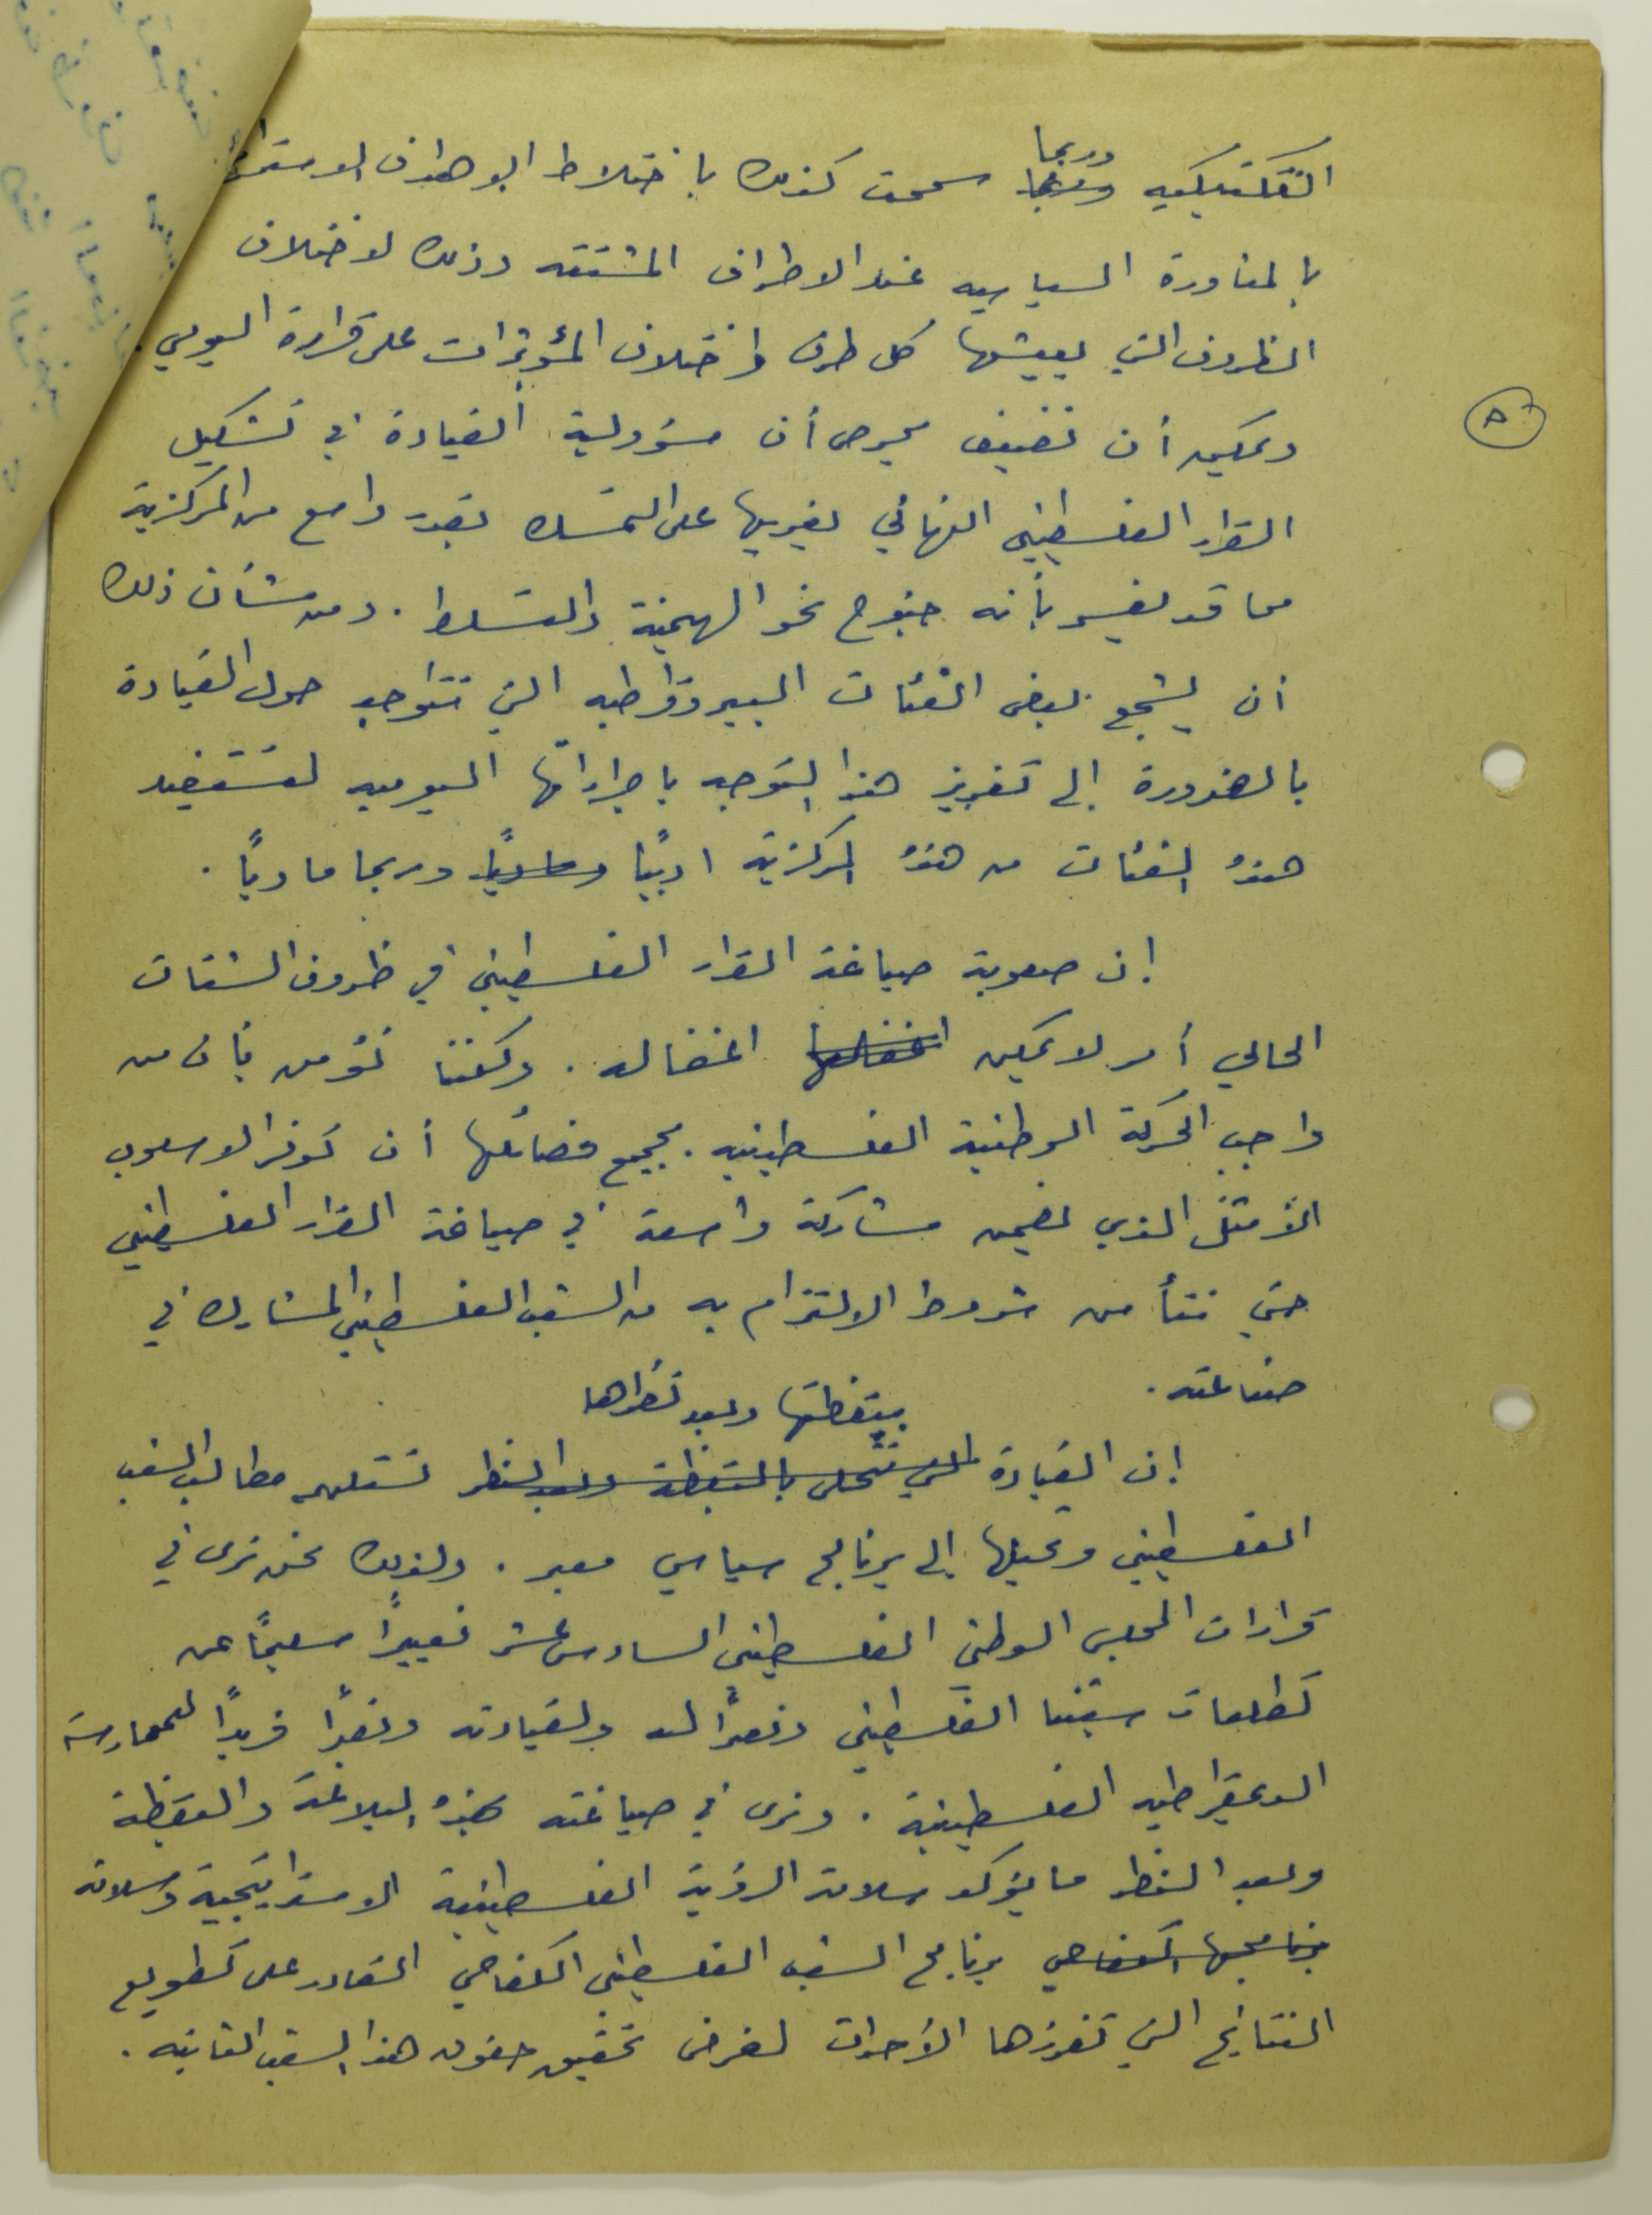 التكتيكيه وربما سمحت كذلك باختلاط الاهداف الاستراتيجية
بالمناورة السياسيه عند الاطراف المشتته وذلك لاختلاف
الظروف التي يعيشها كل طرف واختلاف المؤثرات على قراره اليومي.
ويمكن أن نضيف بحرص أن مسؤولية القيادة في تشكيل
القرار الفلسطيني النهائي يغريها على التمسك بقدر واسع من المركزية
مما قد يفسر بأنه جنوح نحو الهيمنة والتسلط. ومن شأن ذلك
أن يشجع بعض الفئات البيروقراطيه التي تتواجد حول القيادة
بالضرورة إلى تعزيز هذا التوجه باجراءاتها اليوميه لتستفيد
هذه الفئات من هذه المركزية ادبيًا وربما ماديًا.
إن صعوبة صياغة القرار الفلسطيني في ظروف الشتات
الحالي أمر لا يمكن اغفاله. ولكننا نؤمن بأن من
واجب الحركة الوطنية الفلسطينيه بجميع فصائلها أن توفر الاسلوب
الأمثل الذي يضمن مشاركة واسعة في صياغة القرار الفلسطيني
حتى نتأ من شروط الالتزام به من الشعب الفلسطيني المشارك في
صناعته.
بيقظتها وبعد نظرها
إن القيادة تستلهم مطالب الشعب
الفلسطيني وتحيلها إلى برنامج سياسي معبر. ولذلك نحن نرى في
قرارات المجلس الوطني الفلسطيني السادس عشر تعبيرًا سليمًا عن
تطلعات شعبنا الفلسطيني ونصرًا له ولقيادته ونصرًا فريدًا للممارسة
الديمقراطيه الفلسطينية. ونرى في صياغته بهذه البلاغة واليقظة
وبعد النظر ما يؤكد سلامة الرؤية الفلسطينية الاستراتيجية وسلامة
برنامج الشعب الفلسطيني الكفاحي القادر على تطويع
النتائج التي تفرزها الأحداث لغرض تحقيق حقوق هذا الشعب الثابته.